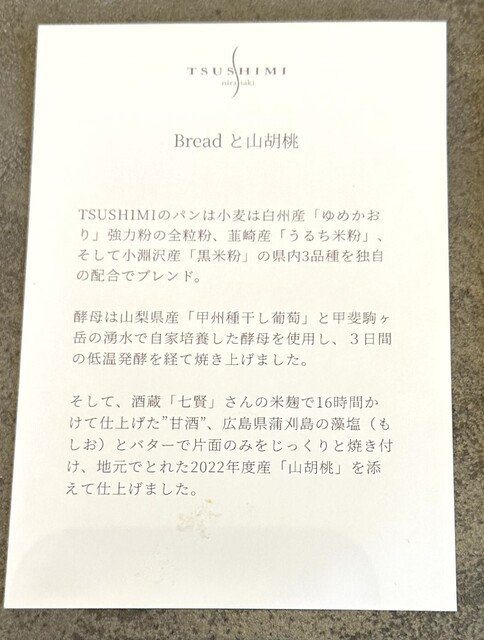 TSUSHIMI
nirasaki
Bread と山胡桃
TSUSHIMIのパンは小麦は白州産「ゆめかお
り」強力粉の全粒粉、韮崎産「うるち米粉」、
そして小淵沢産「黒米粉」の県内3品種を独自
の配合でブレンド。
酵母は山梨県産「甲州種干し葡萄」と甲斐駒ヶ
岳の湧水で自家培養した酵母を使用し、３日間
の低温発酵を経て焼き上げました。
そして、酒蔵「七賢」さんの米麹で16時間か
けて仕上げた”甘酒”、広島県蒲刈島の藻塩（も
しお）とバターで片面のみをじっくりと焼き付
け、地元でとれた2022年度産「山胡桃」を添
えて仕上げました。